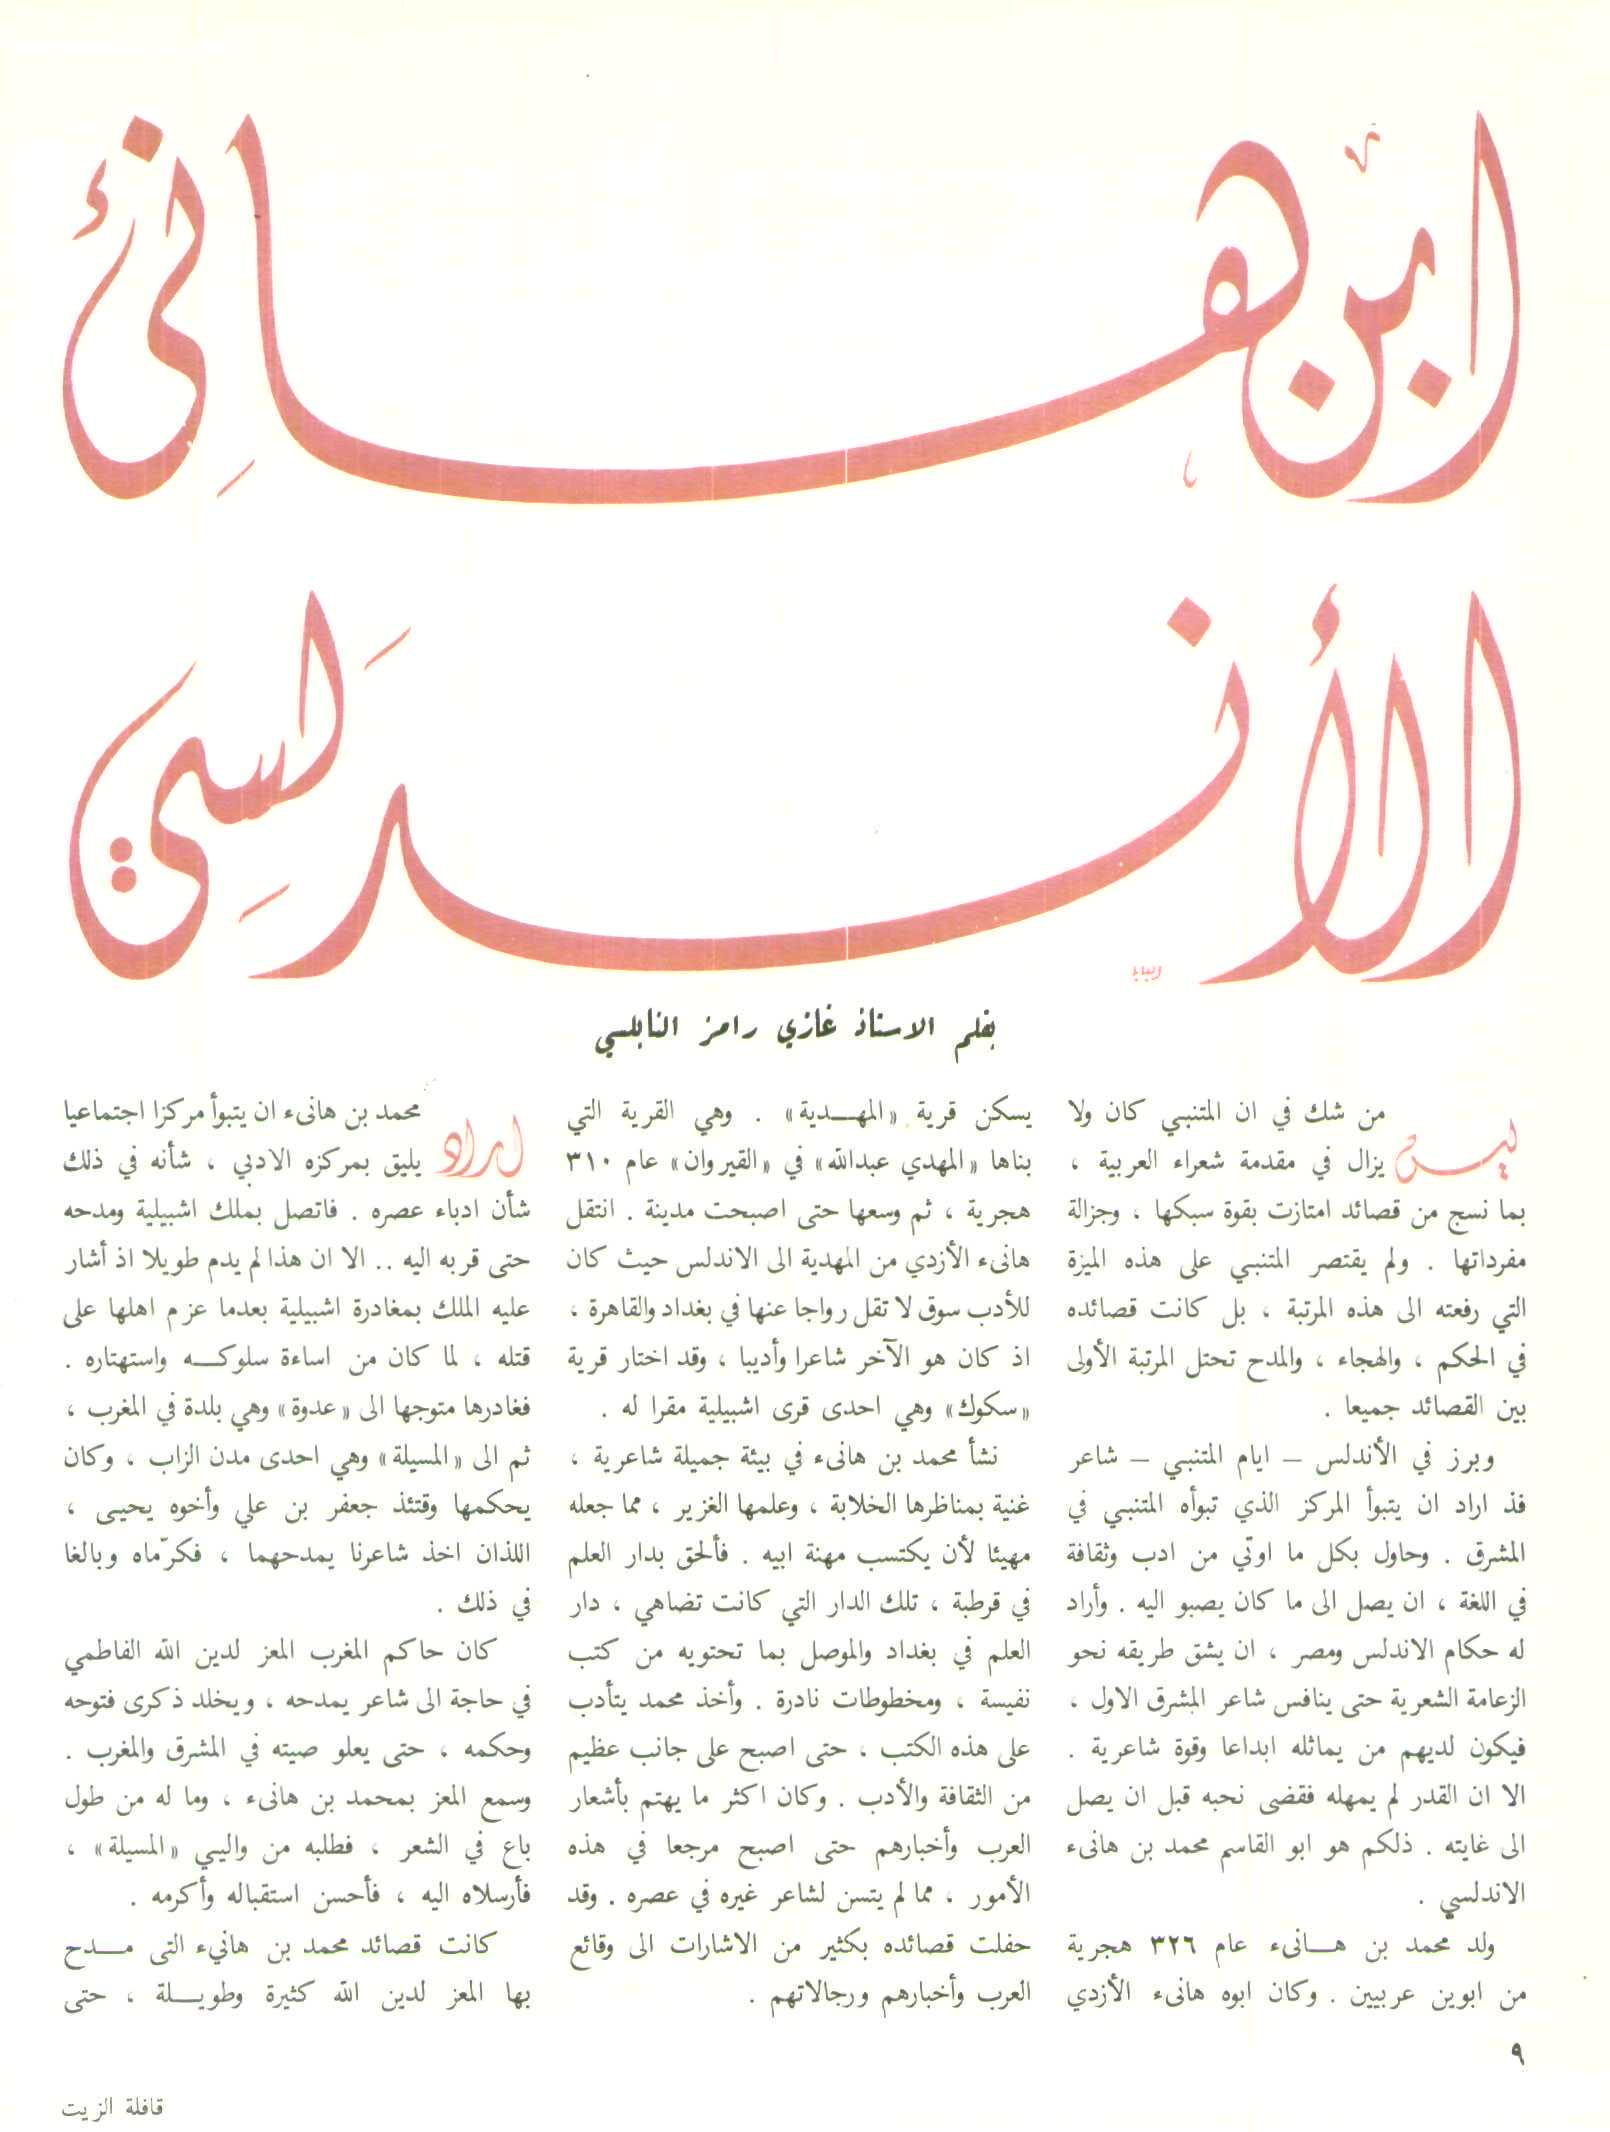 ابن هانئ
الأندلسي
بقلم الاستاذ غازي رامز النابلسي
ليس من شك في ان المتنبي كان ولا
يزال في مقدمة شعراء العربية ،
بما نسج من قصائد امتازت بقوة سبكها ، وجزالة
مفرداتها . ولم يقتصر المتنبي على هذه الميزة
التي رفعته الى هذه المرتبة ، بل كانت قصائده
في الحكم ، والهجاء ، والمدح تحتل المرتبة الأولى
بين القصائد جميعا .
وبرز في الأندلس – ايام المتنبي – شاعر
فذ اراد ان يتبوأ المركز الذي تبوأه المتنبي في
المشرق . وحاول بكل ما اوتي من ادب وثقافة
في اللغة ، ان يصل الى ما كان يصبو اليه . وأراد
له حكام الاندلس ومصر ، ان يشق طريقه نحو
الزعامة الشعرية حتى ينافس شاعر المشرق الاول ،
فيكون لديهم من يماثله ابداعا وقوة شاعرية .
الا ان القدر لم يمهله فقضى نحبه قبل ان يصل
الى غايته . ذلكم هو ابو القاسم محمد بن هانىء
الاندلسي .
ولد محمد بن هـــانىء عام ٣٢٦ هجرية
من ابوين عربيين . وكان ابوه هانىء الأزدي
يسكن قرية «المهـــدية» . وهي القرية التي
بناها «المهدي عبدالله» في «القيروان» عام ٣١٠
هجرية ، ثم وسعها حتى اصبحت مدينة . انتقل
هانىء الأزدي من المهدية الى الاندلس حيث كان
للأدب سوق لا تقل رواجا عنها في بغداد والقاهرة ،
اذ كان هو الآخر شاعرا وأديبا ، وقد اختار قرية
«سكوك» وهي احدى قرى اشبيلية مقرا له .
نشأ محمد بن هانىء في بيئة جميلة شاعرية ،
غنية بمناظرها الخلابة ، وعلمها الغزير ، مما جعله
مهيئا لأن يكتسب مهنة ابيه . فألحق بدار العلم
في قرطبة ، تلك الدار التي كانت تضاهي ، دار
العلم في بغداد والموصل بما تحتويه من كتب
نفيسة ، ومخطوطات نادرة . وأخذ محمد يتأدب
على هذه الكتب ، حتى اصبح على جانب عظيم
من الثقافة والأدب . وكان اكثر ما يهتم بأشعار
العرب وأخبارهم حتى اصبح مرجعا في هذه
الأمور ، مما لم يتسن لشاعر غيره في عصره . وقد
حفلت قصائده بكثير من الاشارات الى وقائع
العرب وأخبارهم ورجالاتهم .
اراد محمد بن هانىء ان يتبوأ مركزا اجتماعيا
يليق بمركزه الادبي ، شأنه في ذلك
شأن ادباء عصره . فاتصل بملك اشبيلية ومدحه
حتى قربه اليه .. الا ان هذا لم يدم طويلا اذ أشار
عليه الملك بمغادرة اشبيلية بعدما عزم اهلها على
قتله ، لما كان من اساءة سلوكـــه واستهتاره .
فغادرها متوجها الى «عدوة» وهي بلدة في المغرب ،
ثم الى «المسيلة» وهي احدى مدن الزاب ، وكان
يحكمها وقتئذ جعفر بن علي وأخوه يحيى ،
اللذان اخذ شاعرنا يمدحهما ، فكرّماه وبالغا
في ذلك .
كان حاكم المغرب المعز لدين الله الفاطمي
في حاجة الى شاعر يمدحه ، ويخلد ذكرى فتوحه
وحكمه ، حتى يعلو صيته في المشرق والمغرب .
وسمع المعز بمحمد بن هانىء ، وما له من طول
باع في الشعر ، فطلبه من واليي «المسيلة» ،
فأرسلاه اليه ، فأحسن استقباله وأكرمه .
كانت قصائد محمد بن هانيء التى مـــدح
بها المعز لدين الله كثيرة وطويـــلة ، حتى
٩
قافلة الزيت